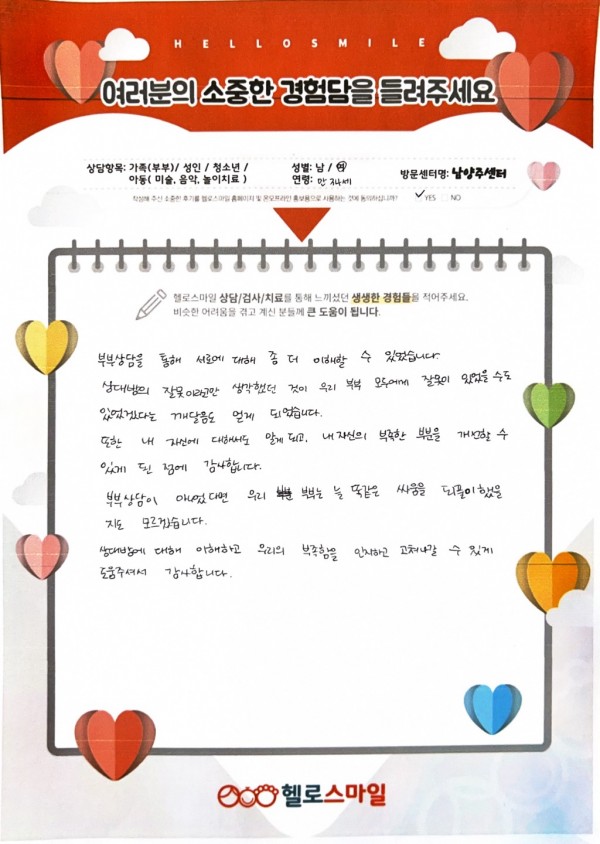 HELLOSMILE
여러분의 소중한 경험담을 들려주세요
상담항목: 가족(부부)/ 성인 / 청소년 /
아동( 미술, 음악, 놀이치료 )
성별: 남 / 여
연령: 만 34세
방문센터명: 남양주센터
작성해 주신 소중한 후기를 헬로스마일 홈페이지 및 온오프라인 홍보용으로 사용하는 것에 동의하십니까? ✓ YES NO
헬로스마일 상담/검사/치료를 통해 느끼셨던 생생한 경험들을 적어주세요.
비슷한 어려움을 겪고 계신 분들께 큰 도움이 됩니다.
부부상담을 통해 서로에 대해 좀 더 이해할 수 있었습니다.
상대방의 잘못이라고만 생각했던 것이 우리 부부 모두에게 잘못이 있었을 수도
있었겠다는 깨달음도 얻게 되었습니다.
또한 내 자신에 대해서도 알게 되고, 내 자신의 부족한 부분을 개선할 수
있게 된 점에 감사합니다.
부부상담이 아니었다면 우리 부부는 늘 똑같은 싸움을 되풀이했을
지도 모르겠습니다.
상대방에 대해 이해하고 우리의 부족함을 인지하고 고쳐나갈 수 있게
도움주셔서 감사합니다.
헬로스마일